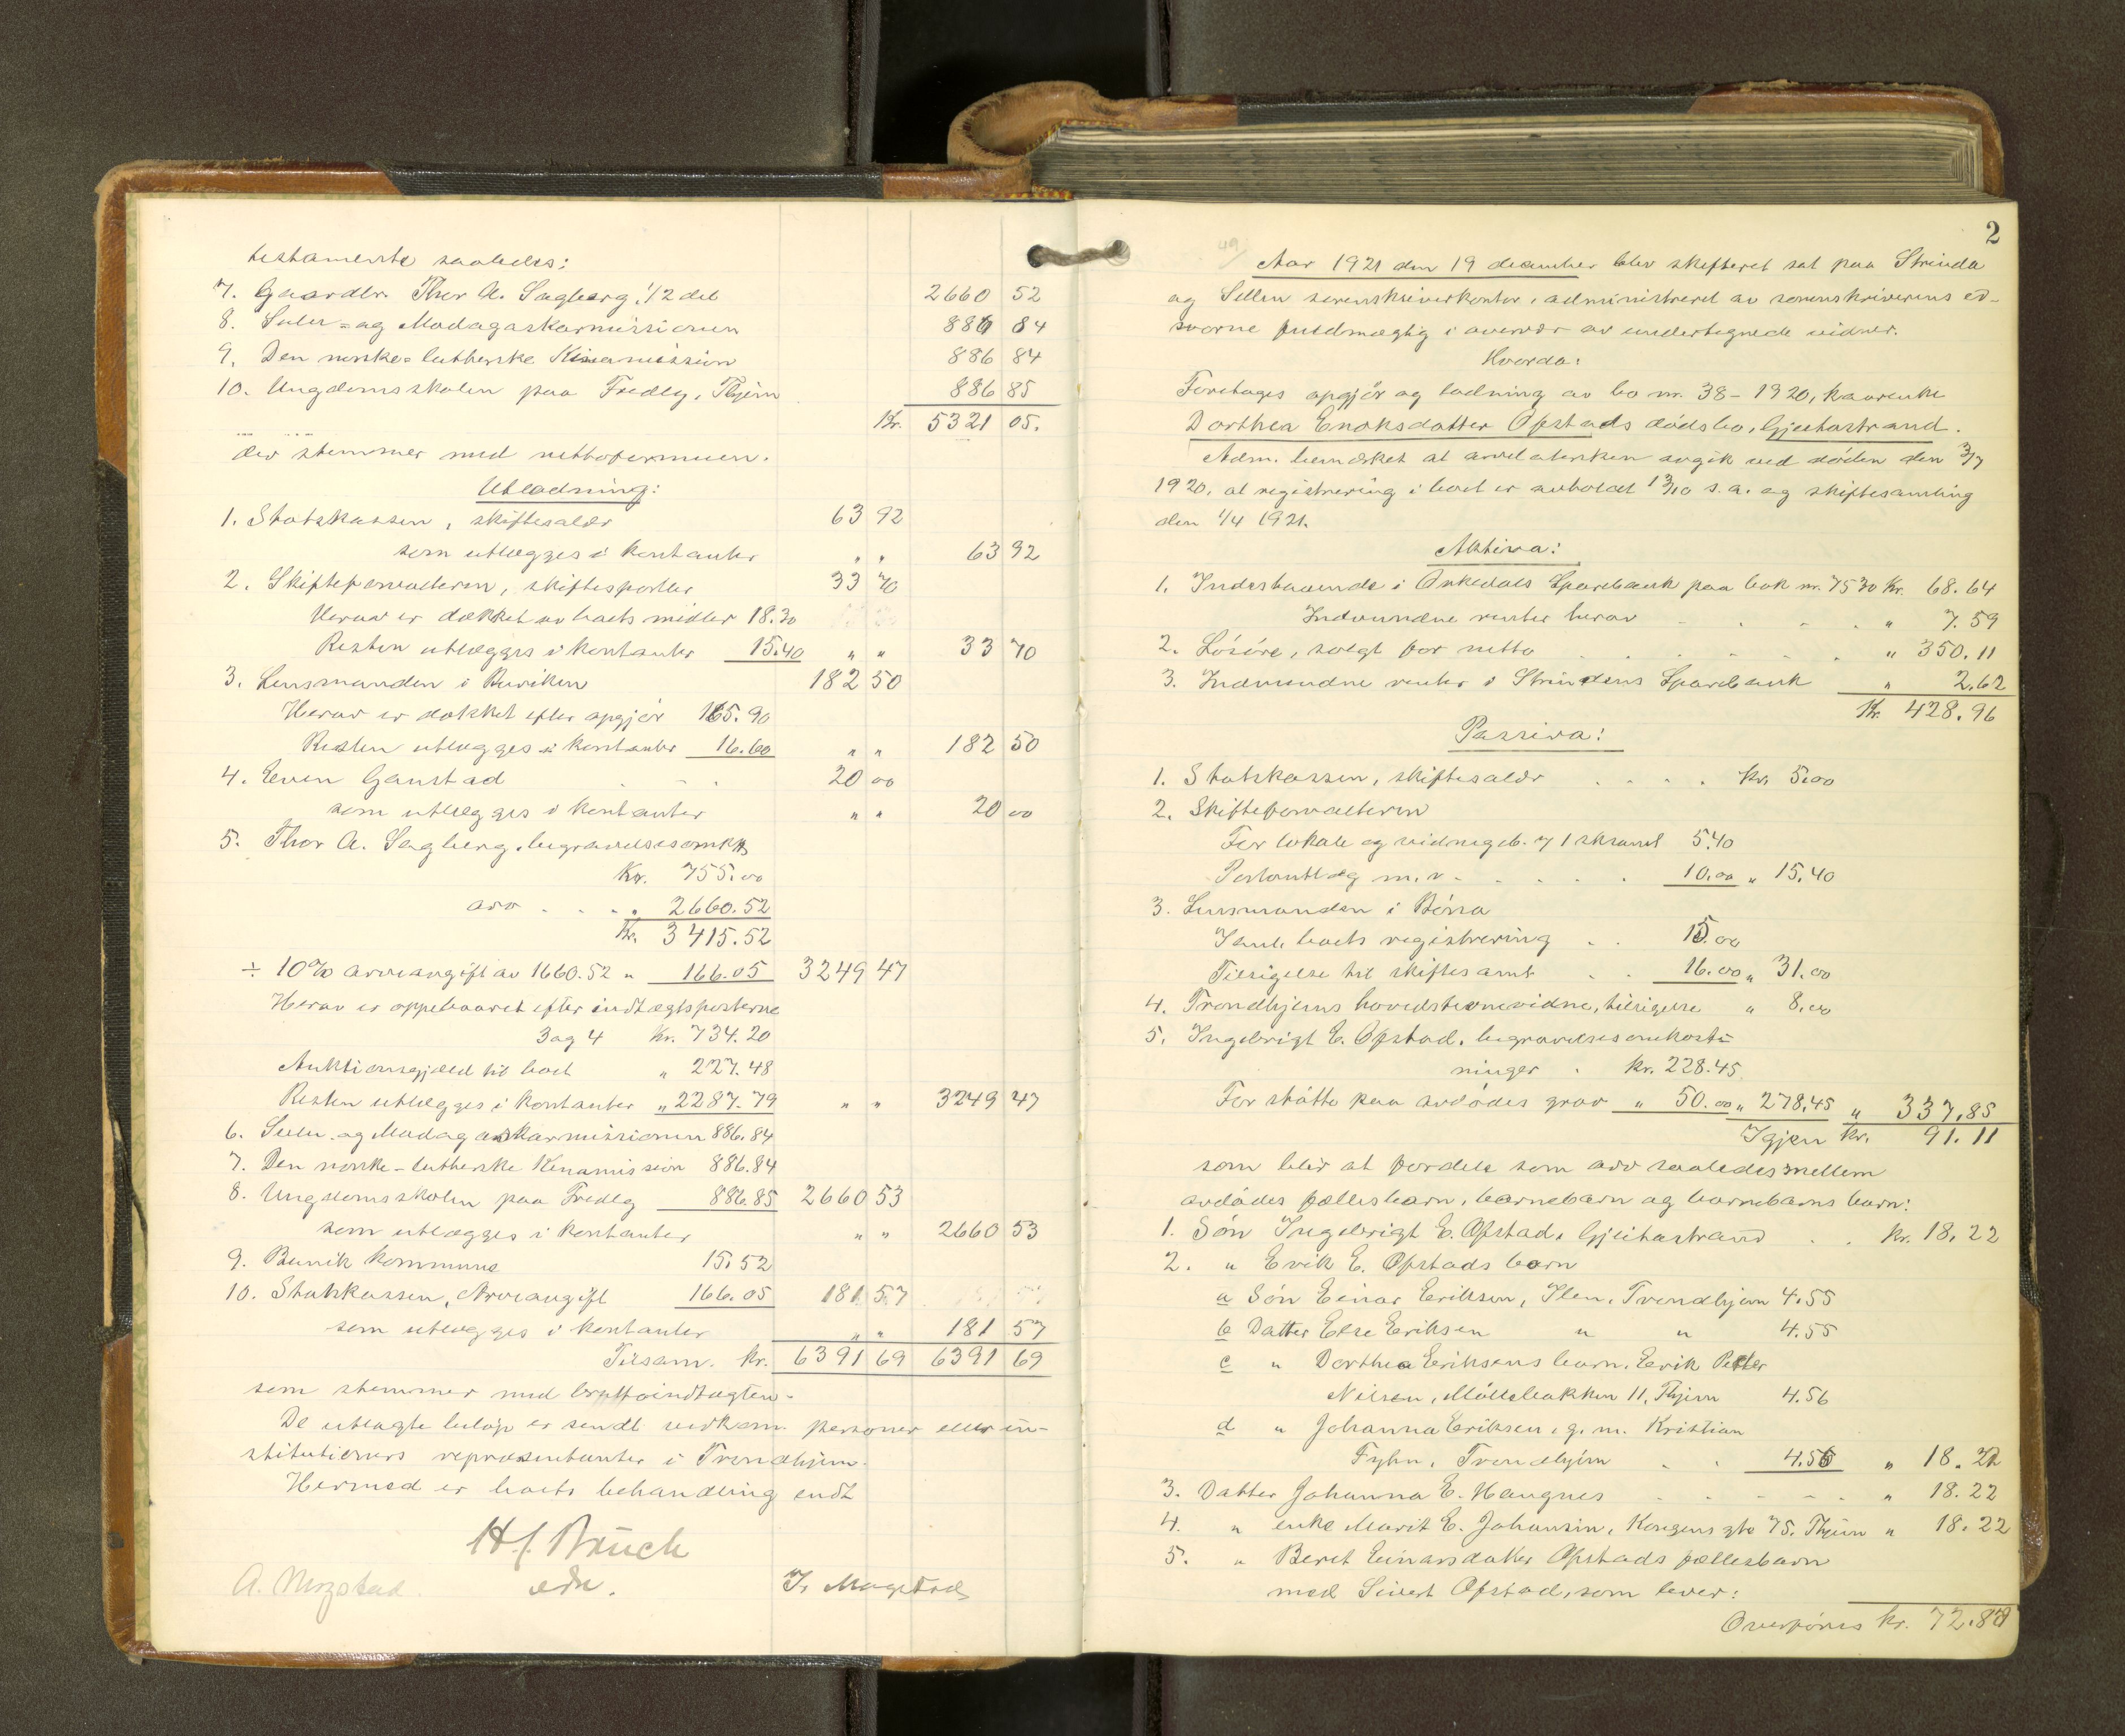 testamente saaledes:
7. Gaardbr. Thor A. Sagberg, 1/2 del 2660 52
8. Sulu- og Madagaskarmissionen 886 84
9. Den norske-lutherske Kinamission 886 84
10. Ungdomsskolen paa Fredly, Thjem 886 85
Kr. 5321 05.
der stemmer med nettoformuen.
Utlodning:
1. Statskassen, skiftesalær 63 92
som utlægges i kontanter " " 63 92
2. Skifteforvalteren, skiftesportler 33 70
Herav er dækket av boets midler 18.30
Resten utlægges i kontanter 15.40 " " 33 70
3. Lensmanden i Buviken 182 50
Herav er dækket efter opgjør 165.90
Resten utlægges i kontanter 16.60 " " 182 50
4. Even Gaustad 20 00
som utlægges i kontanter " " 20 00
5. Thor A. Sagberg, begravelsesomk.
Kr. 755.00
arv " 2660.52
Kr. 3415.52
÷ 10% arveavgift av 1660.52 " 166.05 3249 47
Herav er oppebaaret efter indtægtsposterne
3 og 4 Kr. 734.20
Auktionsgjæld til boet " 227.48
Resten utlægges i kontanter " 2287.79 " " 3249 47
6. Sulu- og Madagaskarmissionen 886.84
7. Den norske-lutherske Kinamission 886.84
8. Ungdomsskolen paa Fredly 886.85 2660 53
som utlægges i kontanter " " 2660 53
9. Buvik kommune 15.52
10. Statskassen, Arveavgift 166.05 181 57
som utlægges i kontanter " " 181 57
Tilsam. kr. 6391 69 6391 69
som stemmer med bruttoindtægten.
De utlagte beløp er sendt vedkom. personer eller in-
stitutioners repræsentanter i Trondhjem.
Hermed er boets behandling endt
H.J. Bruch
edv.
A. Mogstad. I. Mogstad
2
49
Aar 1921 den 19 december blev skifteret sat paa Strinda
og Selbu sorenskriverkontor, administreret av sorenskriverens ed-
svorne fuldmægtig i overvær av undertegnede vidner.
Hvorda:
Foretages opgjør og lodning av bo nr. 38-1920, kaarenke
Dorthea Enoksdatter Opstads dødsbo, Gjeitastrand.
Adm. bemerket at arveladersken avgik ved døden den 3/7
1920, at registrering i boet er avholdt 13/10 s.a. og skiftesamling
den 1/4 1921.
Aktiva:
1. Indestaaende i Orkedals Sparebank paa bok nr. 7530 Kr. 68.64
Indvundne renter herav " 7.59
2. Løsøre, solgt for netto " 350.11
3. Indvundne renter i Strindens Sparebank " 2.62
Kr. 428.96
Passiva:
1. Statskassen, skiftesalær kr. 5.00
2. Skifteforvalteren
For lokale og vidnegeb. 7 1 sksaml 5.40
Portoutlæg m.v. 10.00 " 15.40
3. Lensmanden i Børsa
Saml. boets registrering 15.00
Tilsigelse til skiftesaml 16.00 " 31.00
4. Trondhjems hovedstevnevidne, tilsigelse " 8.00
5. Ingebrigt E. Opstad, begravelsesomkost-
ninger kr. 228.45
For støtte paa avdødes grav " 50.00 " 278.45 " 337.85
Igjen kr. 91.11
som blir at fordele som arv saaledes mellem
avdødes fællesbarn, barnebarn og barnebarns barn:
1. Søn Ingebrigt E. Opstad, Gjeitastrand kr. 18.22
2. " Erik E. Opstads barn
a Søn Einar Eriksen, Ilen, Trondhjem 4.55
b Datter Else Eriksen " " 4.55
c " Dorthea Eriksens barn, Erik Petter
Nilsen, Møllebakken 11, Thjem 4.56
d " Johanna Eriksen, g. m. Kristian
Fyhn, Trondhjem 4.56 " 18.22
3. Datter Johanna E. Haugnes " 18.22
4. " enke Marit E. Johansen, Kongens gt. 75, Thjem " 18.22
5. " Beret Einarsdatter Opstads fællesbarn
med Sivert Opstad, som lever:
Overføres kr. 72.88